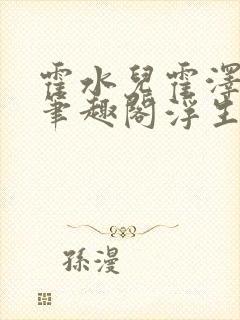 霍水兒霍澤
筆趣閣浮生
孫漫